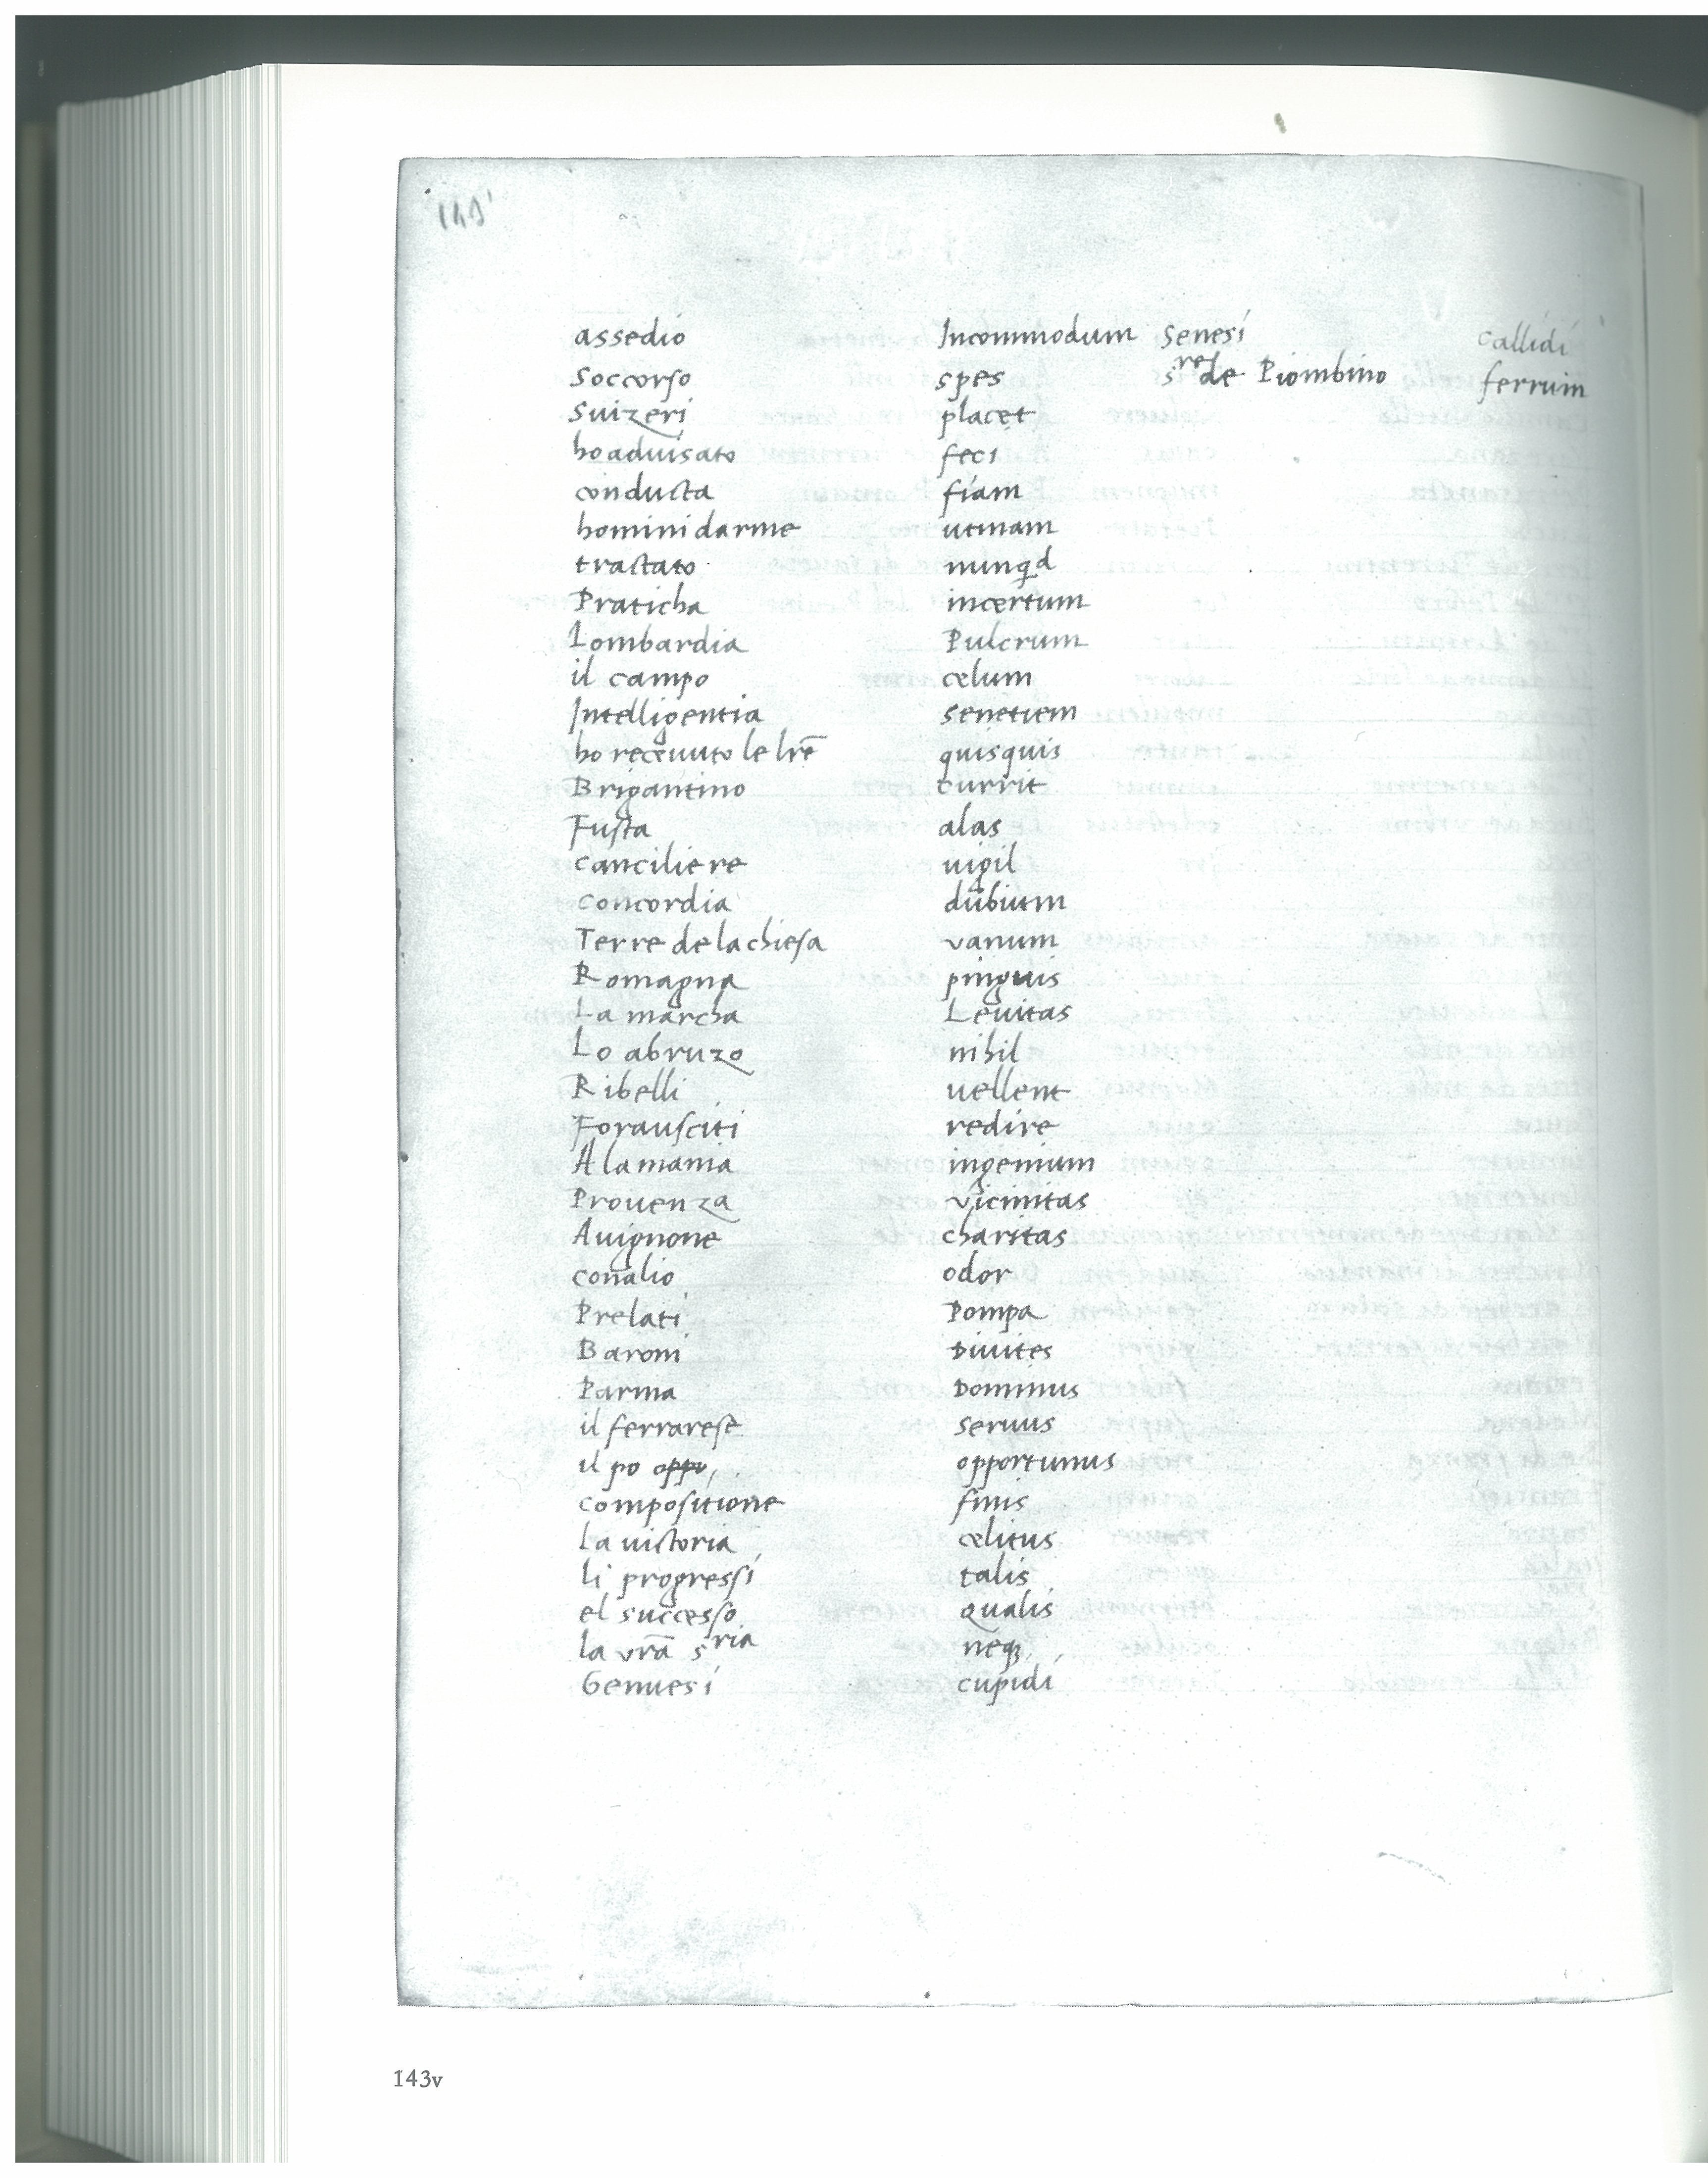 143'
assedio Incommodum Senesi Callidi
Soccorso spes s^re de Piombino ferrum
Suizeri placet
ho aduisato feci
conducta fiam
homini darme utinam
tractato nunqd
Praticha incertum
Lombardia Pulcrum
il campo celum
Intelligentia senetiem
ho receuuto le lr̄e quisquis
Brigantino currit
Fusta alas
canciliere uigil
concordia dubium
Terre de la chiesa vanum
Romagna pinguis
La marcha Leuitas
Lo abruzo nihil
Ribelli uellent
Forausciti redire
Alamania ingenium
Prouenza vicinitas
Auignone charitas
concilio odor
Prelati Pompa
Baroni Diuites
Parma Dominus
il ferrarese seruus
il po oppo, opportunus
compositione finis
La uictoria celitus
li progressi talis
el successo qualis
la vrā s^ria neqꝫ
Genuesi cupidi
143v